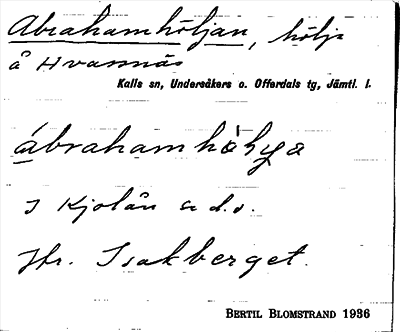 Abrahamhöljan, hölje
å Hvannäs
Kalls sn, Undersåkers o. Offerdals tg, Jämtl. l.
ábrahamhàlya
I Kjolån
Jfr. Isakberget.
BERTIL BLOMSTRAND 1936